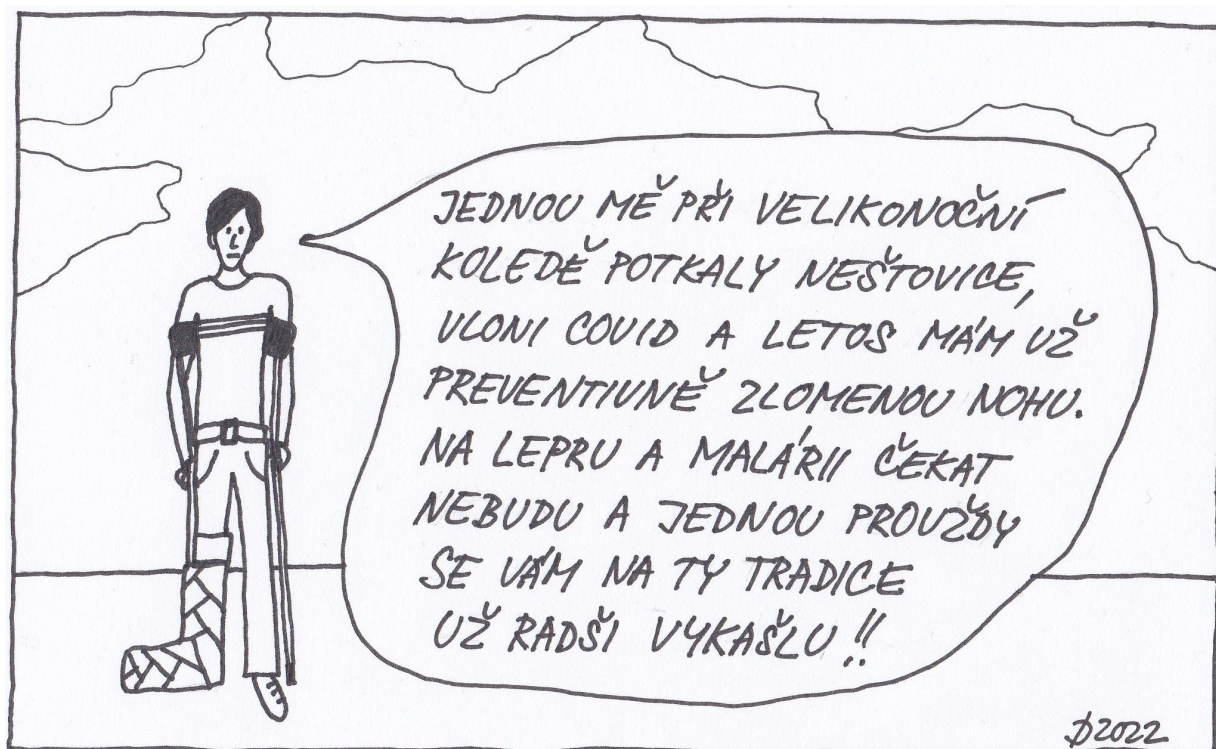 JEDNOU MĚ PŘI VELIKONOČNÍ
KOLEDĚ POTKALY NEŠTOVICE,
VLONI COVID A LETOS MÁM UŽ
PREVENTIVNĚ ZLOMENOU NOHU.
NA LEPRU A MALÁRII ČEKAT
NEBUDU A JEDNOU PROVŽDY
SE VÁM NA TY TRADICE
UŽ RADŠI VYKAŠLU!!
2022